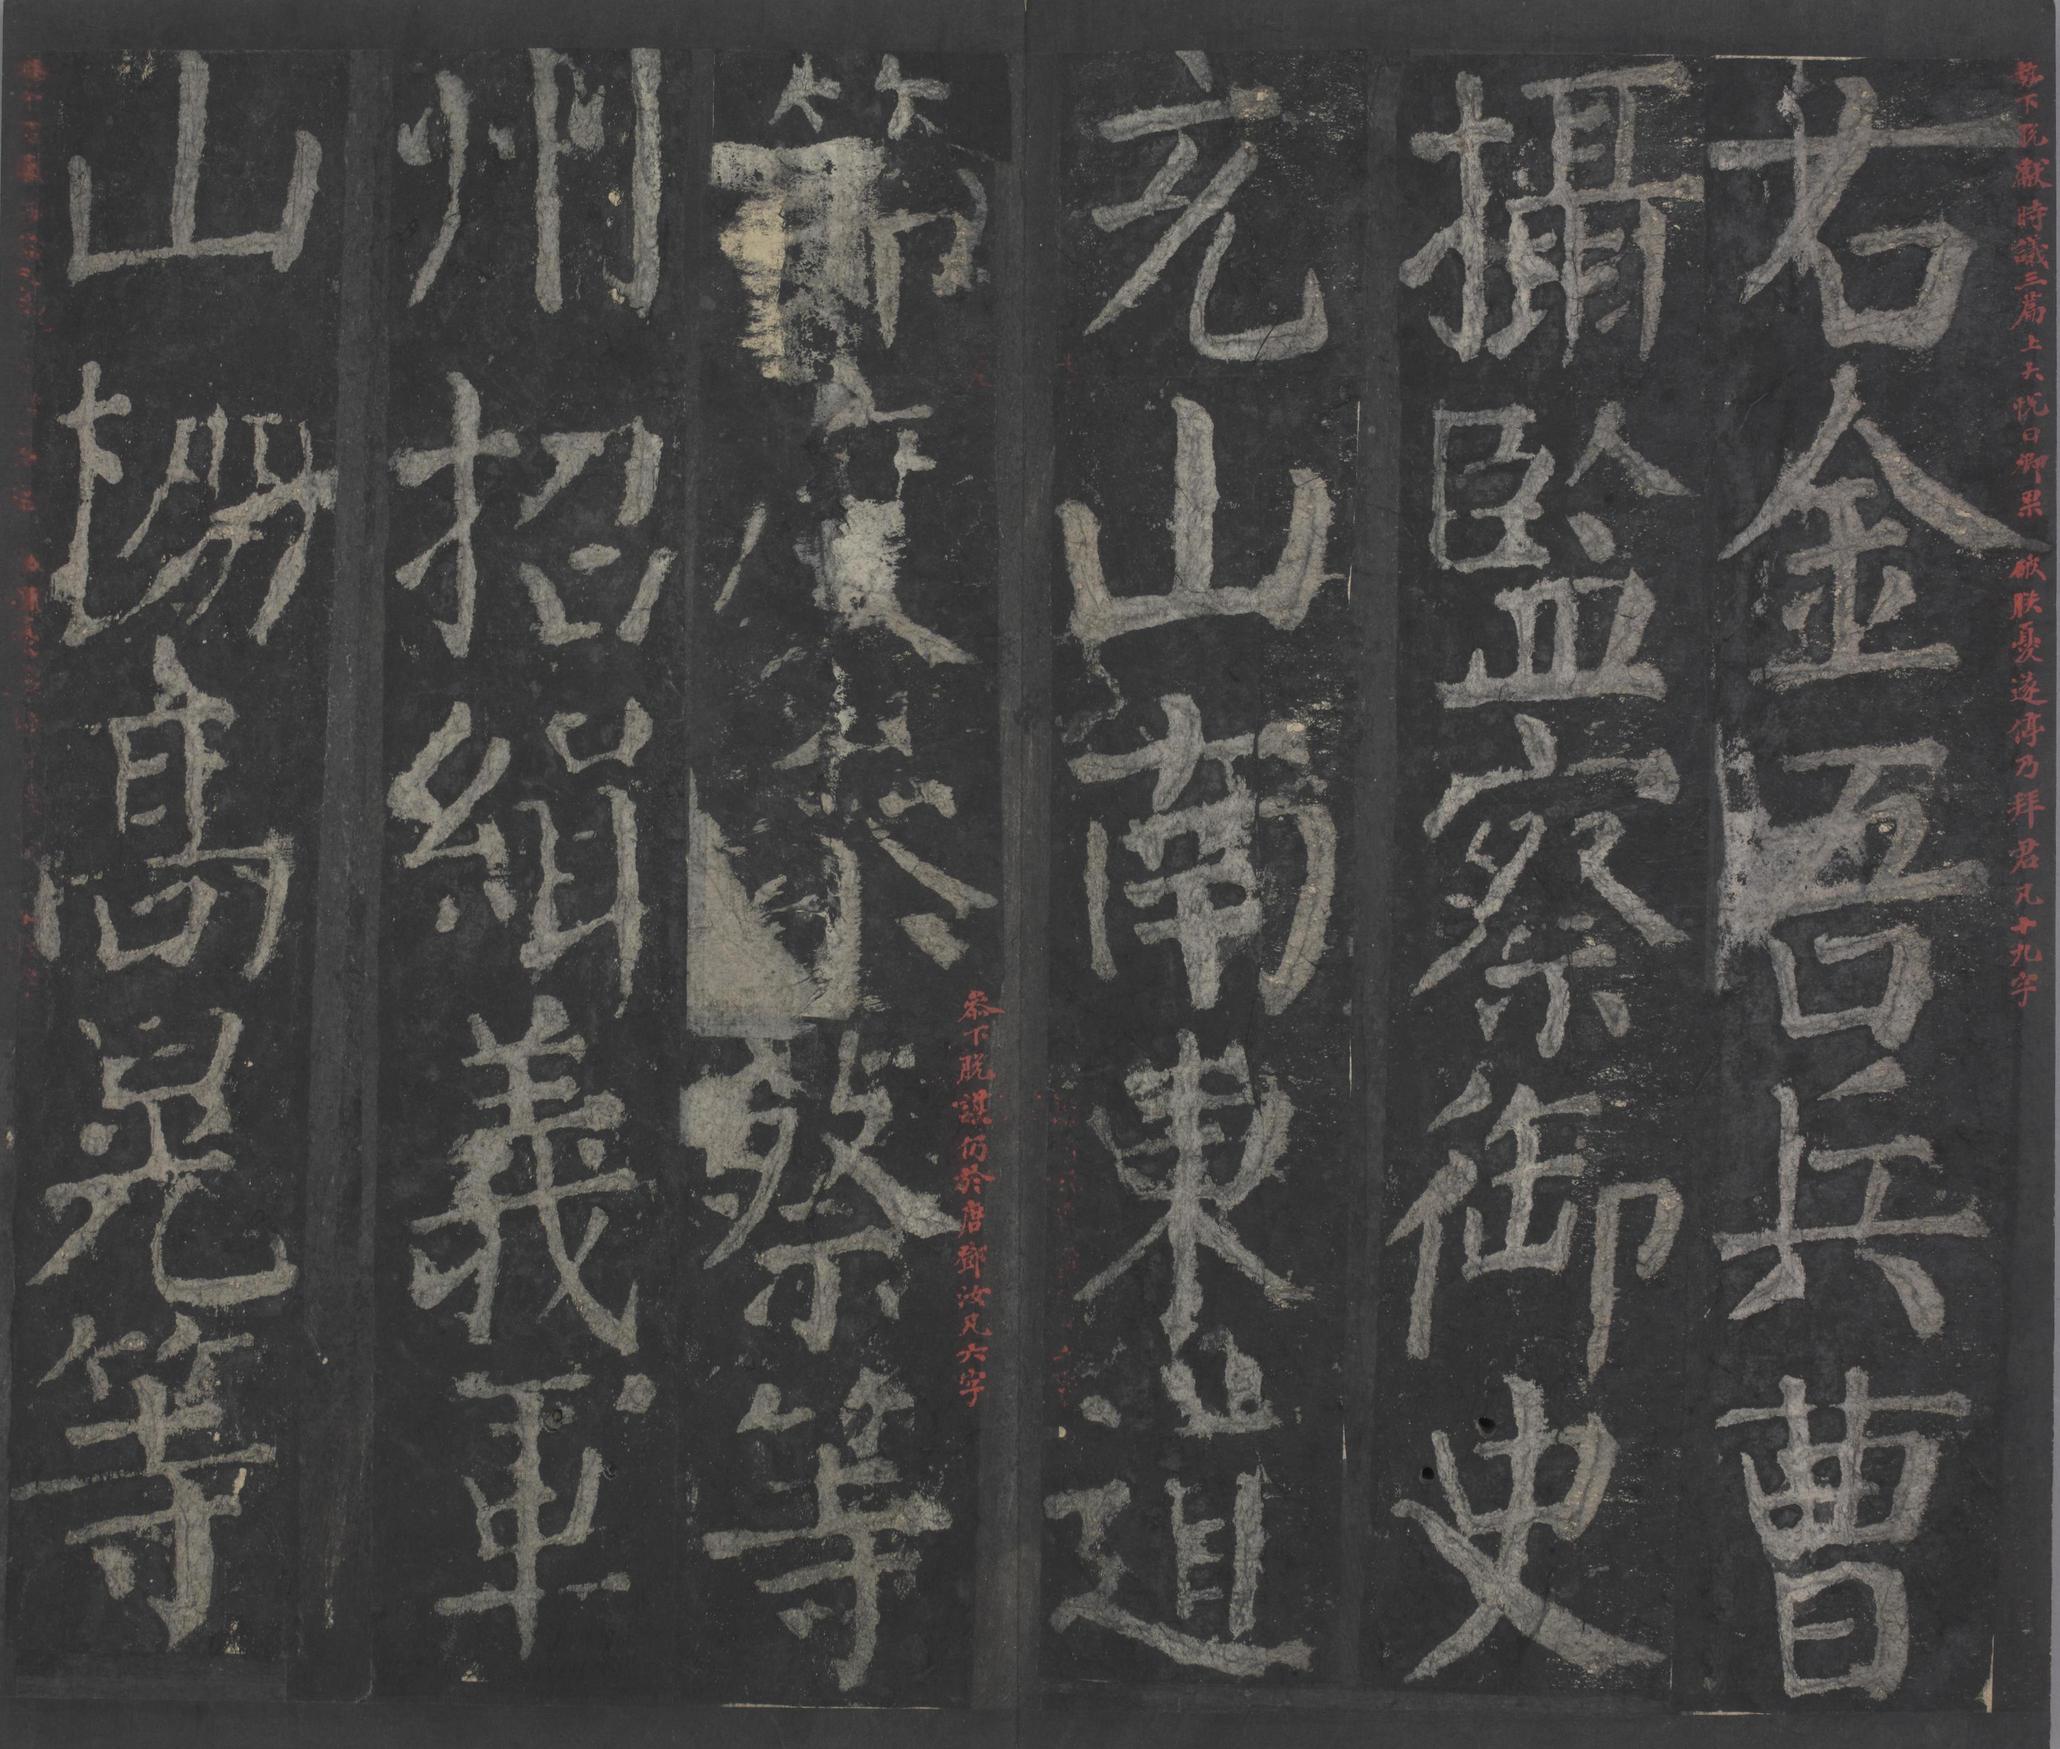 勢下脫獻時議三篇上大悅曰卿果破朕憂遂停乃拜君凡十九字
右金吾兵曹
攝監察御史
充山南東道
參下脫謀仍於唐鄧汝凡六字
節度參蔡等
州招緝義軍
山棚高晃等